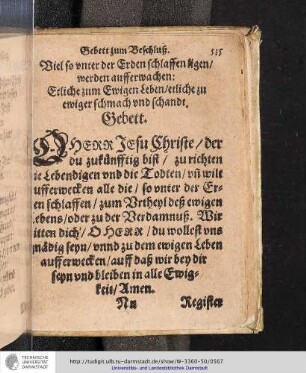 Gebett zum Beschluß. 535
Viel so vnter der Erden schlaffen ligen/
werden aufferwachen:
Etliche zum Ewigen Leben/etliche zu
ewiger schmach vnd schandt.
Gebett.
O HERR JEsu Christe/ der
du zukünfftig bist / zu richten
ie Lebendigen vnd die Todten/ vñ wilt
ufferwecken alle die/ so vnter der Er-
en schlaffen/ zum Vrtheyl deß ewigen
ebens/oder zu der Verdamnuß. Wir
itten dich/ O HERR/ du wollest vns
nädig seyn/ vnnd zu dem ewigen Leben
aufferwecken/ auff daß wir bey dir
seyn vnd bleiben in alle Ewig-
keit/ Amen.
Nn Register
TECHNISCHE
UNIVERSITÄT
DARMSTADT
http://tudigit.ulb.tu-darmstadt.de/show/W-3360-50/0567
Universitäts- und Landesbibliothek Darmstadt